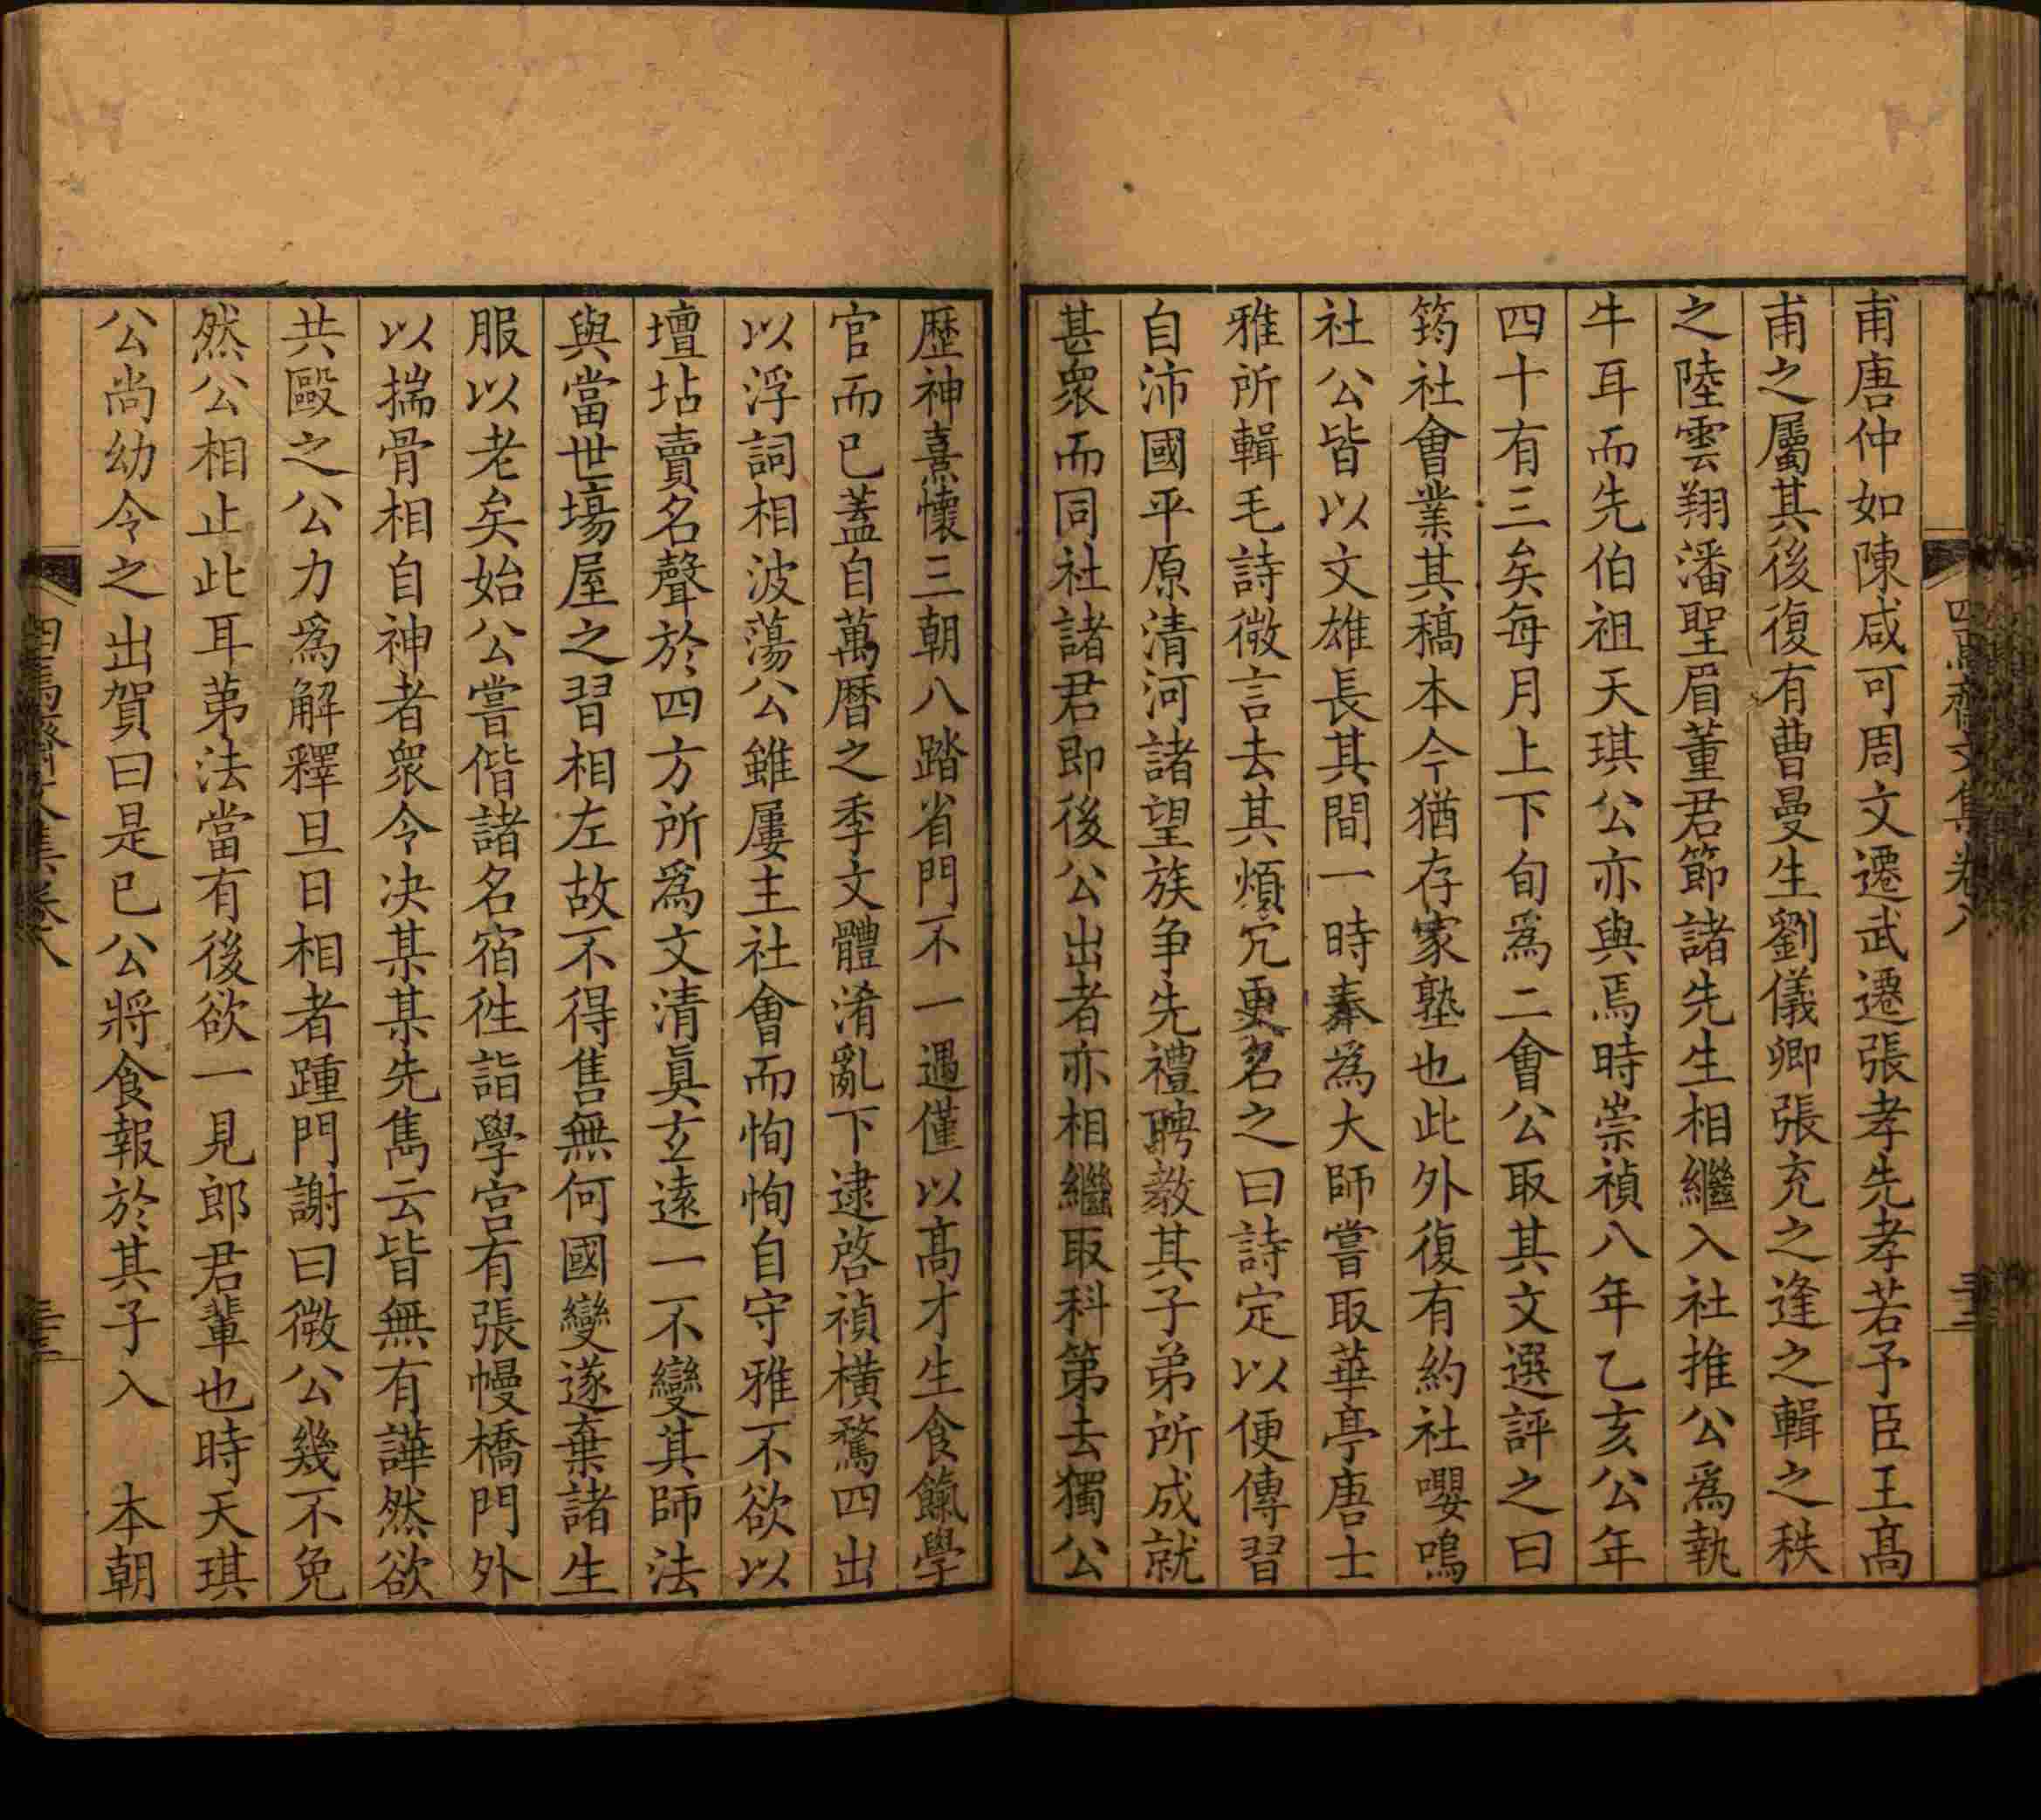 甫唐仲如陳咸可周文遷武遷張孝先孝若予臣王髙
甫之屬其後復有曹曼生劉儀卿張充之逢之輯之秩
之陸雲翔潘聖眉董君節諸先生相繼入社推公爲執
牛耳而先伯祖天琪公亦與焉時崇禎八年乙亥公年
四十有三矣每月上下旬爲二會公取其文選評之曰
筠社會業其稿本今猶存家塾也此外復有約社嚶鳴
社公皆以文雄長其間一時奉爲大師嘗取華亭唐士
雅所輯毛詩微言去其煩冗更名之曰詩定以便傳習
自沛國平原清河諸望族争先禮聘教其子弟所成就
甚衆而同社諸君即後公出者亦相繼取科第去獨公
歷神熹懷三朝八踏省門不一遇僅以髙才生食餼學
官而已蓋自萬曆之季文體淆亂下逮啓禎横騖四出
以浮詞相波蕩公雖屢主社會而恂恂自守雅不欲以
壇坫賣名聲於四方所爲文清眞玄遠一不變其師法
與當世塲屋之習相左故不得售無何國變遂棄諸生
服以老矣始公嘗偕諸名宿徃詣學宫有張幔橋門外
以揣骨相自神者衆令决某某先雋云皆無有譁然欲
共毆之公力爲解釋旦日相者踵門謝曰微公幾不免
然公相止此耳苐法當有後欲一見郎君輩也時天琪
公尚幼令之出賀曰是已公將食報於其子入　本朝
四焉齋文集卷八